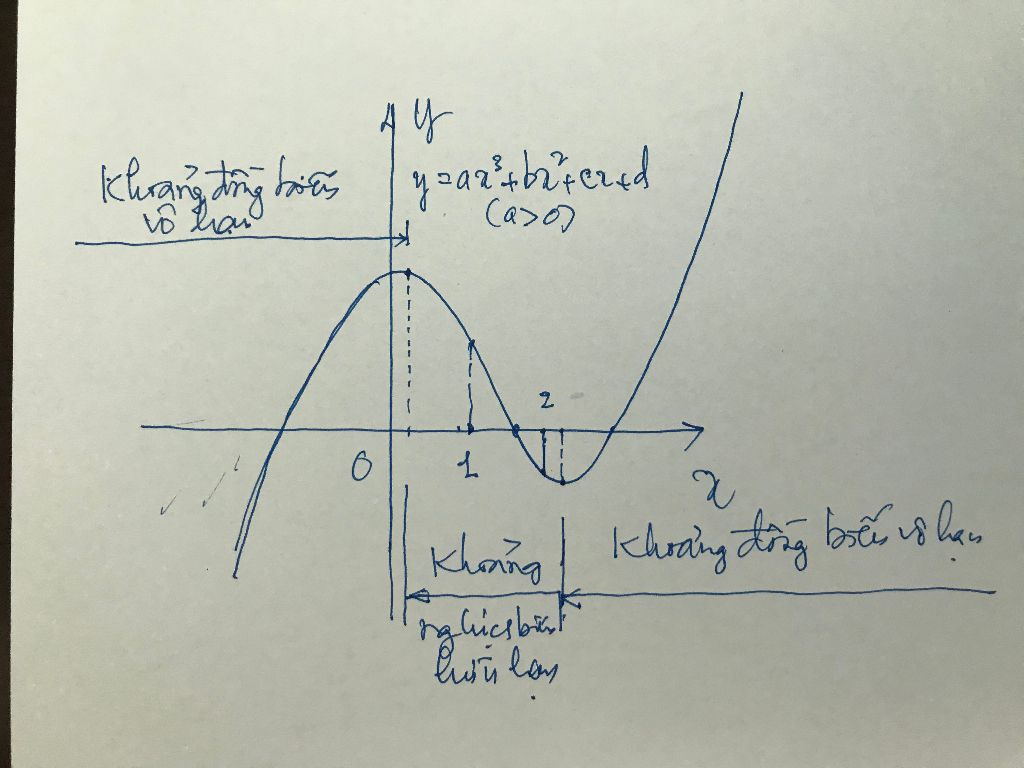 y
Khoảng đồng biến
vô hạn
y=ax³+bx²+cx+d
(a>0)
2
0
1
x
Khoảng
nghịch biến
hữu hạn
Khoảng đồng biến vô hạn